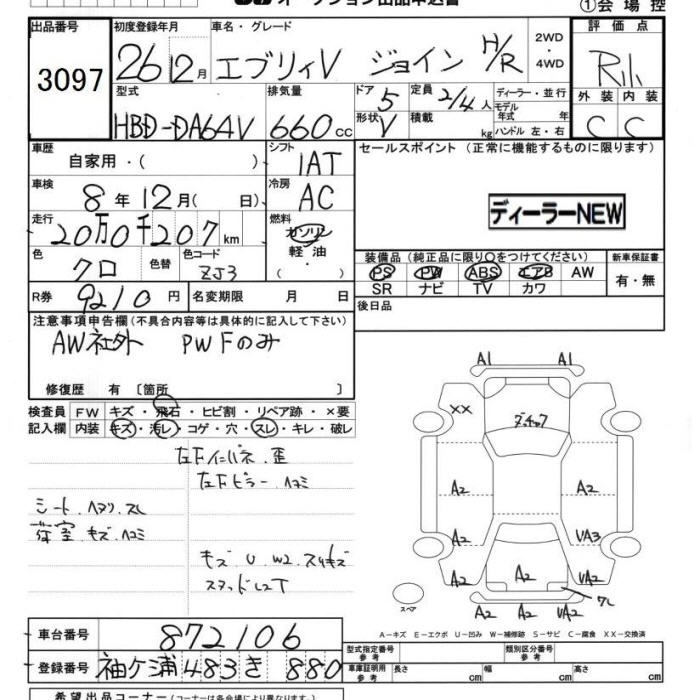 オークション出品申込書
①会場控
出品番号 初度登録年月 車名・グレード 2WD・4WD 評価点
3097 26 12月 エブリィV ジョイン H/R R小
型式 排気量 ドア 5 定員 2/4人 ディーラー・並行 外装 内装
HBD-DA64V 660cc 形状 V 積載 kg モデル年式 年 ハンドル 左・右 C C
車歴 自家用・( ) シフト IAT セールスポイント (正常に機能するものに限ります)
車検 8年12月( 日) 冷房 AC
ディーラーNEW
走行 20万0千207km 燃料 ガソリン 軽油 ( )
色 クロ 色替 色コード ZJ3
装備品(純正品に限り〇をつけてください) 新車保証書
PS PW ABS エアB AW 有・無
SR ナビ TV カワ
R券 9210円 名変期限 月 日
後日品
注意事項申告欄(不具合内容等は具体的に記入して下さい)
AW社外 PW Fのみ
修復歴 有〔箇所 〕
検査員 FW キズ・飛石・ヒビ割・リペア跡・×要
記入欄 内装 キズ・汚レ・コゲ・穴・スレ・キレ・破レ
左Fインパネ.歪
左Fピラー.ヘコミ
シート.ヘタリ.スレ
荷室.キズ.ヘコミ
キズ U W2 スリキズ
A1 A1
XX
A2 A2
A2 UA3
A2 A2 UA2
A2 A2 UA2
スペア
A-キズ E-エクボ U-凹み W-補修跡 S-サビ C-腐食 XX-交換済
車台番号 872106
型式指定番号 参考 類別区分番号 参考
登録番号 袖ケ浦 483 き 880
車庫証明用 参考 長さ cm 幅 cm 高さ cm
希望出品コーナー(各会場により異なります)